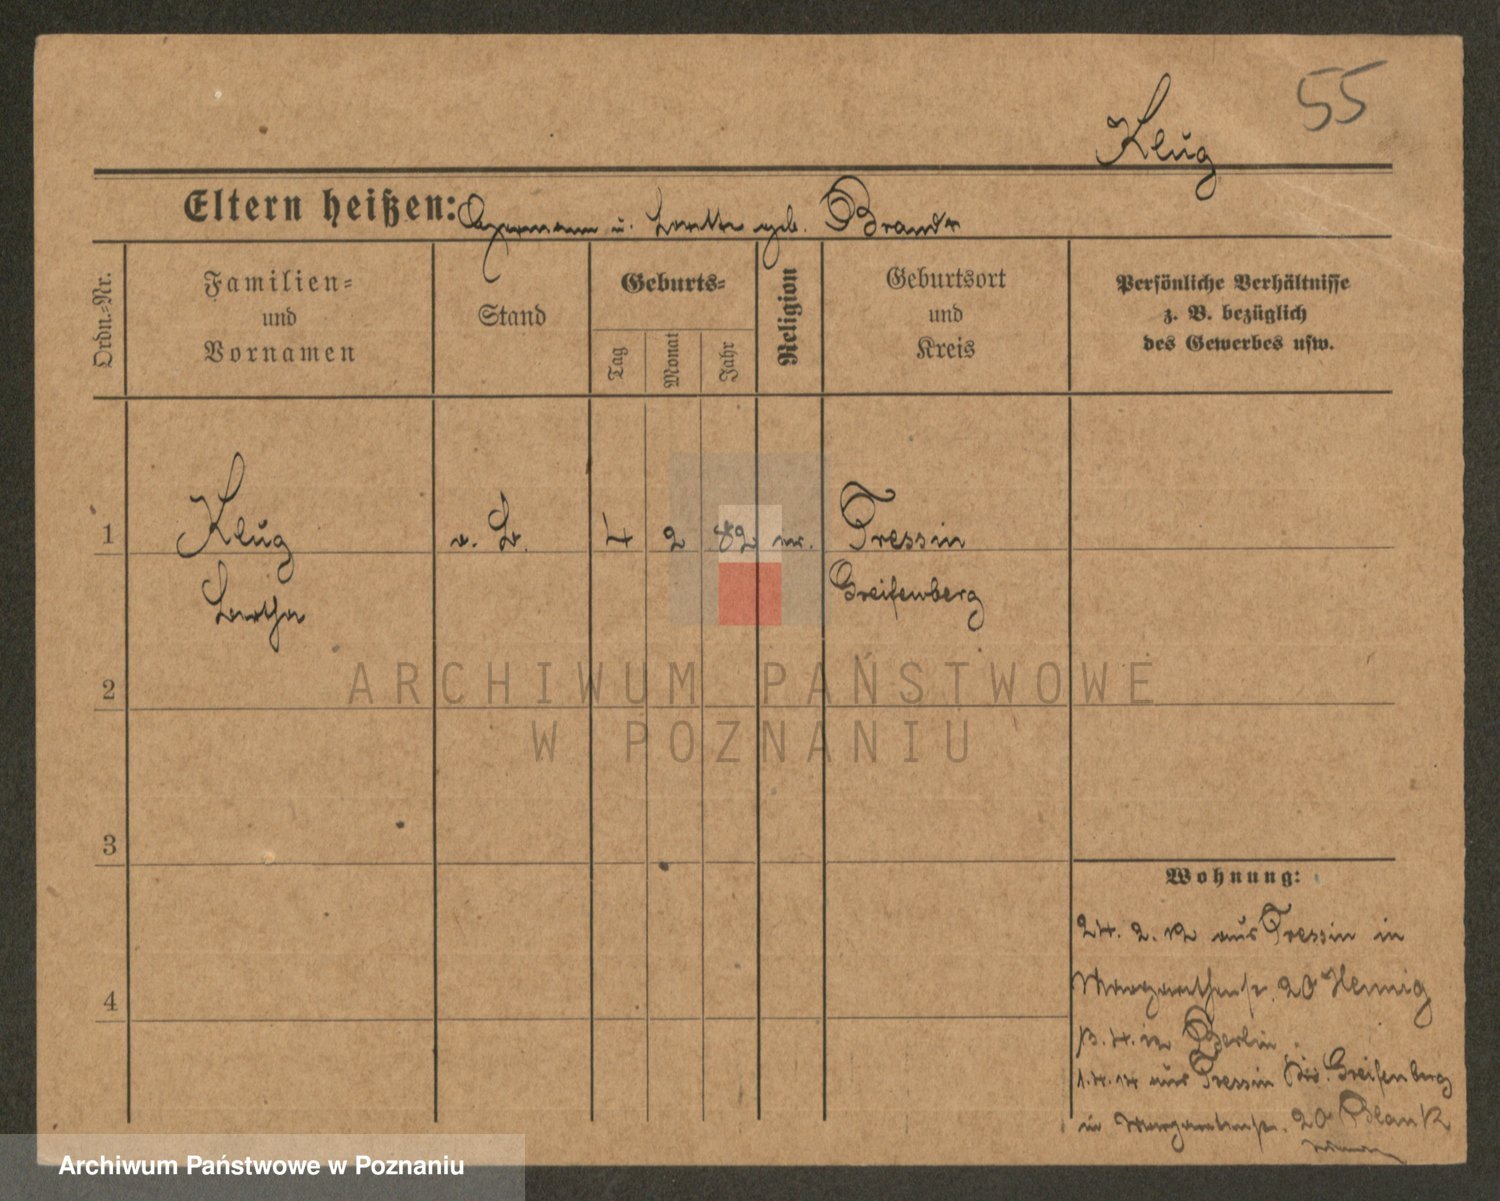 55
Klug
Eltern heißen: Hermann u. Bertha geb. Brandt
Ordn.-Nr.
Familien-
und
Vornamen
Stand
Geburts-
Tag
Monat
Jahr
Religion
Geburtsort
und
Kreis
Persönliche Verhältnisse
z. B. bezüglich
des Gewerbes usw.
1
Klug
Bertha
4
2
82
Tressin
Greifenberg
2
3
4
Wohnung:
24. 2. 12 aus Tressin in
Margarethenstr. 20 Hennig
in Berlin
1.4.14 aus Tressin Krs. Greifenberg
in Margarethenstr. 20 Blank
ARCHIWUM PAŃSTWOWE
W POZNANIU
Archiwum Państwowe w Poznaniu